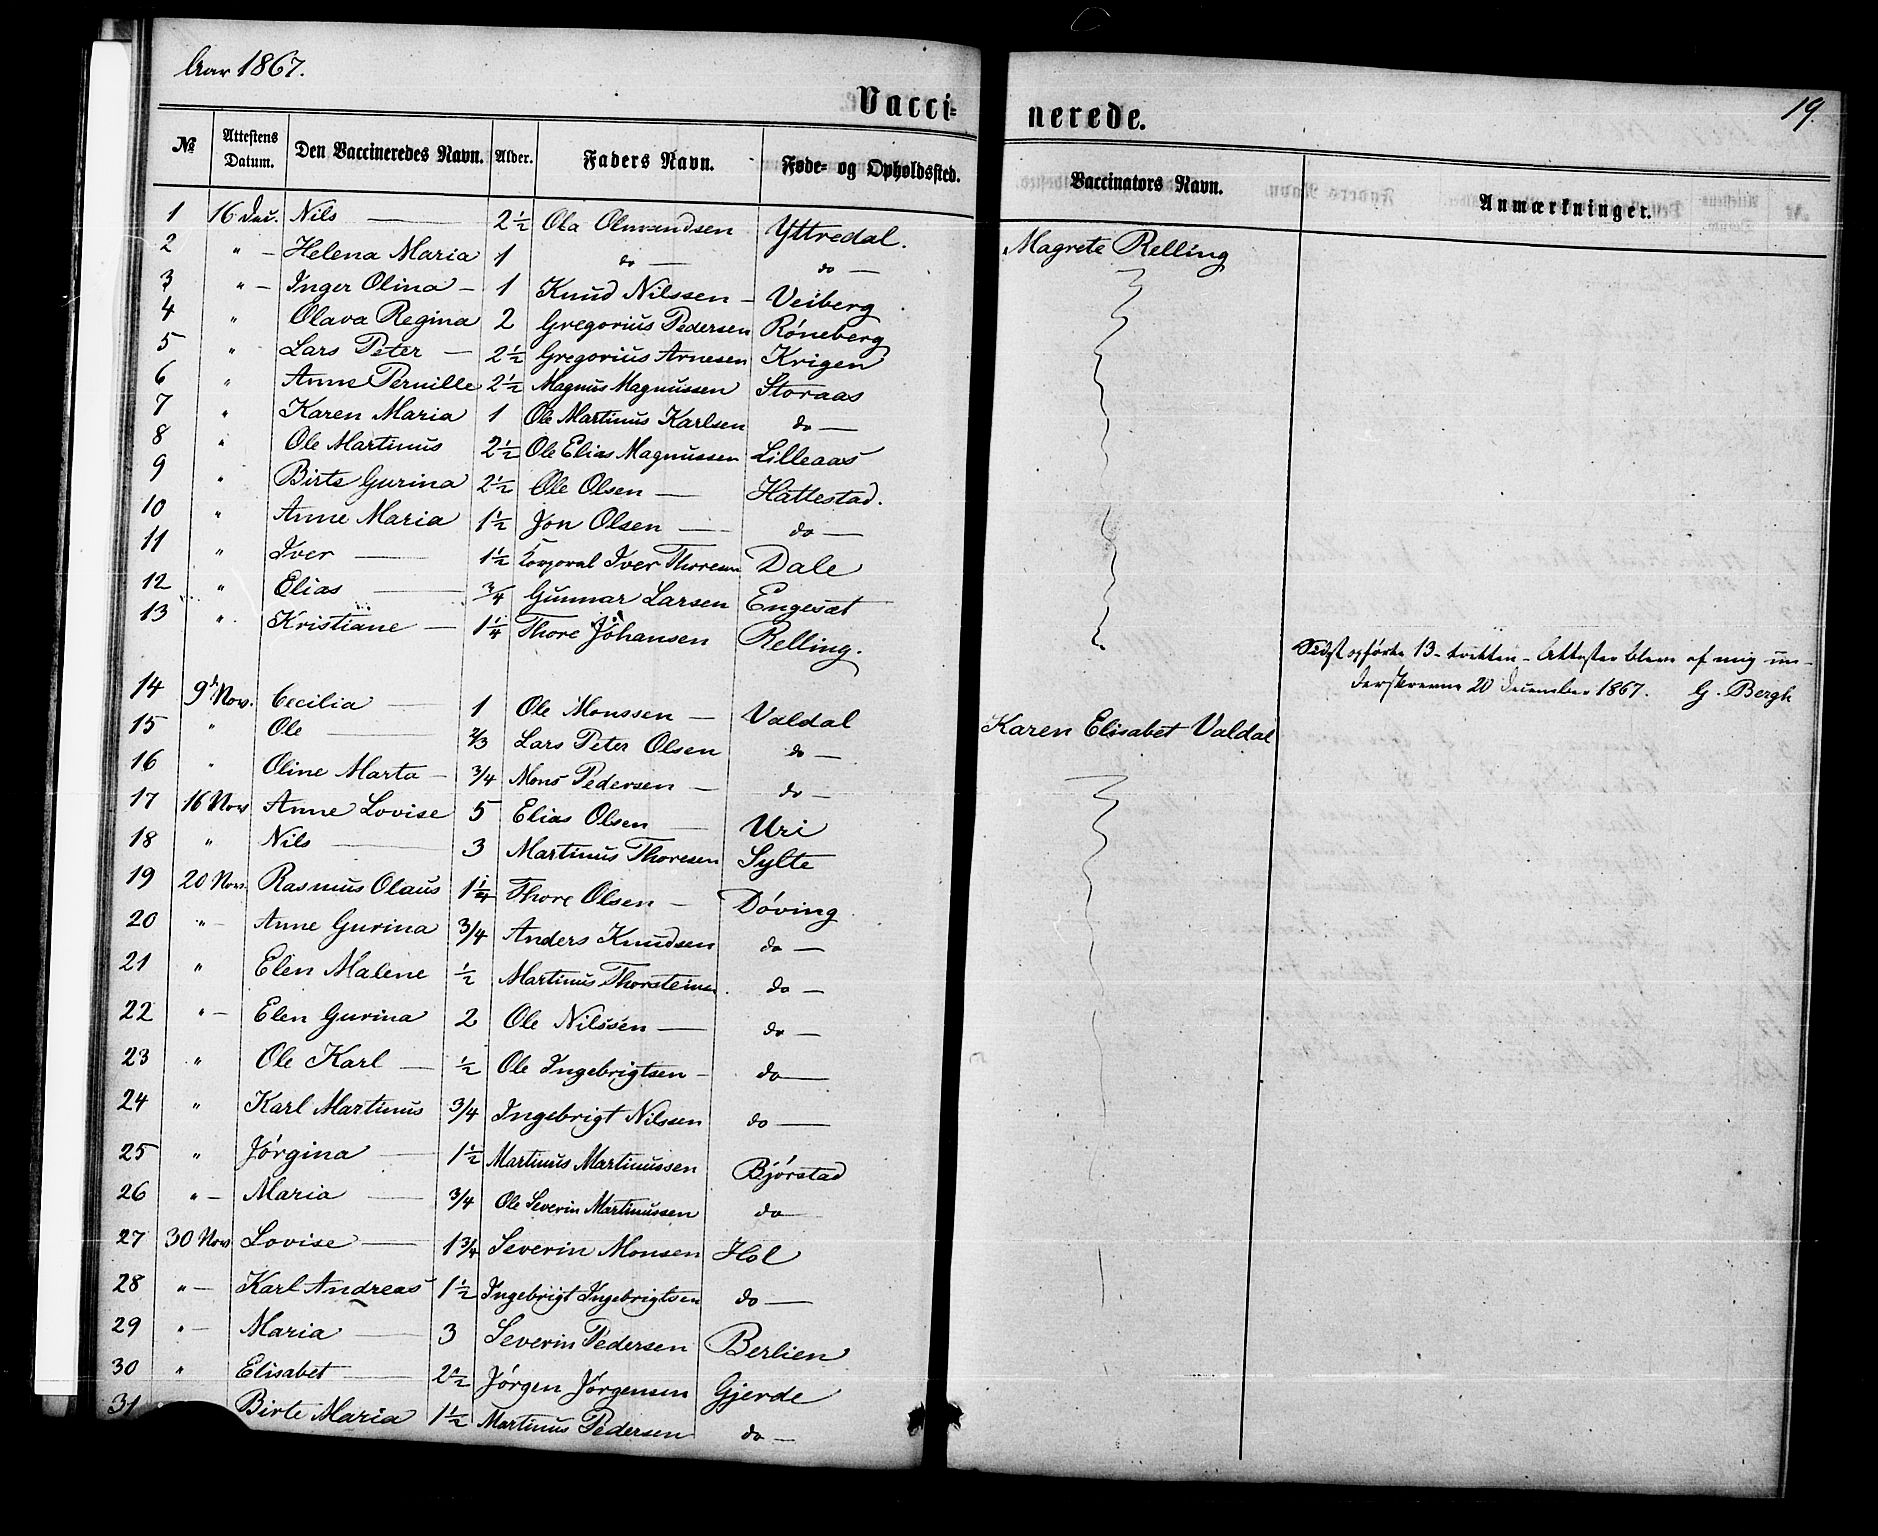 Aar 1867.
19.
Vacci-nerede.
№ | Attestens Datum. | Den Vaccineredes Navn. | Alder. | Faders Navn. | Føde- og Opholdssted. | Vaccinators Navn. | Anmærkninger.
1 | 16 Dec. | Nils — | 2½ | Ola Olmundsen | Yttredal. | Magrete Relling
2 | " — | Helena Maria | 1 | do — | do —
3 | " — | Inger Olina — | 1 | Knud Nilssen — | Veiberg
4 | " | Olava Regina | 2 | Gregorius Pedersen | Róneberg
5 | " | Lars Peter — | 2½ | Gregorius Arnesen | Krigen
6 | " | Anne Pernille | 2½ | Magnus Magnussen | Storaas
7 | " | Karen Maria | 1 | Ole Martinus Karlsen | do —
8 | " | Ole Martinus | 2½ | Ole Elias Magnussen | Lilleaas
9 | " | Birte Gurina | 2½ | Ole Olsen — | Hattestad.
10 | " | Anne Maria | 1½ | Jon Olsen — | do —
11 | " | Iver — | 1½ | Korporal Iver Thoresen | Dale
12 | " | Elias — | ¾ | Gunnar Larsen | Engesæt
13 | " | Kristiane — | 1¼ | Thore Johansen | Relling.
Sidst opførte 13 - tretten - Attester bleve af mig un-
derskrevne 20 december 1867. G. Bergh
14 | 9 Nov. | Cecilia — | 1 | Ole Monssen — | Valdal | Karen Elisabet Valdal
15 | " | Ole — | ⅔ | Lars Peter Olsen | do —
16 | " | Oline Marta — | ¾ | Mons Pedersen — | do —
17 | 16 Nov | Anne Lovise | 5 | Elias Olsen — | Uri
18 | " | Nils — | 3 | Martinus Thoresen | Sylte
19 | 20 Nov. | Rasmus Olaus | 1¼ | Thore Olsen — | Dóving
20 | " — | Anne Gurina | ¾ | Anders Knudsen | do —
21 | " | Elen Malene | ½ | Martinus Thorsteinsen | do —
22 | " — | Elen Gurina | 2 | Ole Nilssen — | do —
23 | " | Ole Karl — | ½ | Ole Ingebrigtsen — | do —
24 | " | Karl Martinus | ¾ | Ingebrigt Nilssen | do —
25 | " | Jórgina — | 1½ | Martinus Martinussen | Bjórstad
26 | " — | Maria — | ¾ | Ole Severin Martinussen | do —
27 | 30 Nov | Lovise — | 1¾ | Severin Monsen | Hol
28 | " — | Karl Andreas | 1½ | Ingebrigt Ingebrigtsen | do —
29 | " — | Maria — | 3 | Severin Pedersen | Berlien
30 | " | Elisabet — | 2½ | Jórgen Jórgensen | Gjerde
31 | Birte Maria | 1½ | Martinus Pedersen | do —